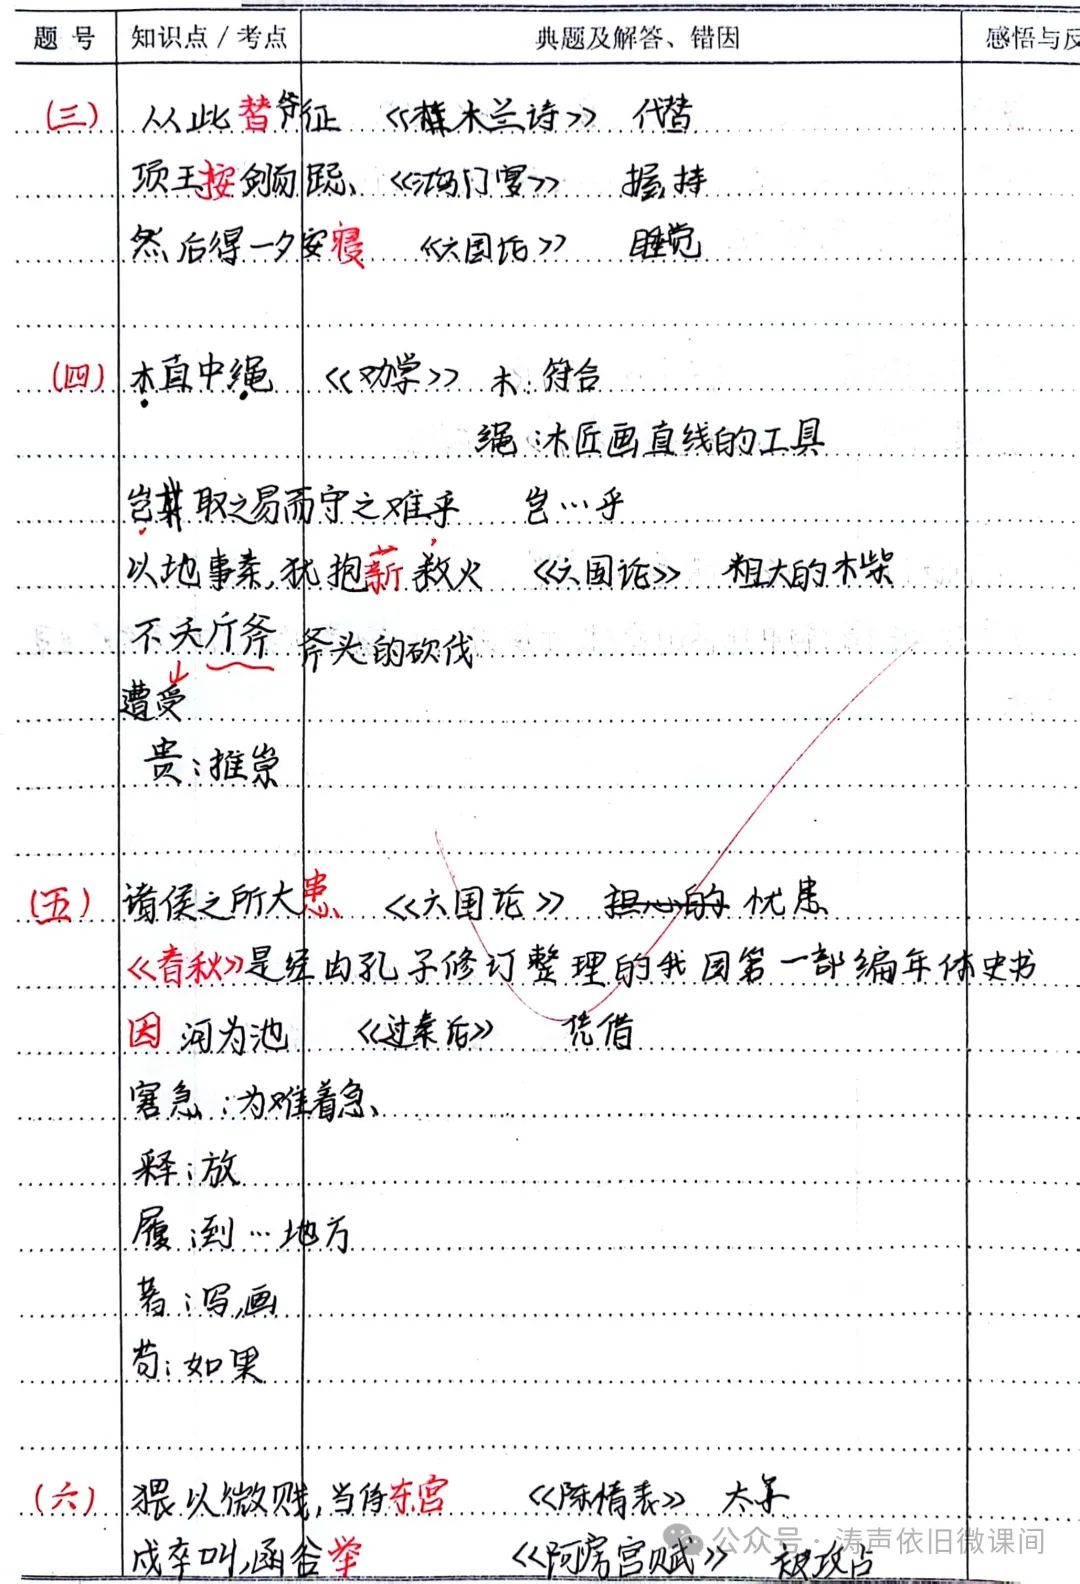 题 号 知识点 / 考点 典题及解答、错因 感悟与反
(三) 从此替爷征 《木兰诗》 代替
项王按剑而跽、《鸿门宴》 握持
然后得一夕安寝 《六国论》 睡觉
(四) 木直中绳 《劝学》 木:符合
绳:木匠画直线的工具
岂其取之易而守之难乎 岂…乎
以地事秦,犹抱薪救火 《六国论》 粗大的木柴
不夭斤斧 斧头的砍伐
遭受
贵:推崇
(五) 诸侯之所大患、 《六国论》 担心的 忧患
《春秋》是经由孔子修订整理的我国第一部编年体史书
因河为池 《过秦论》 凭借
窘急:为难着急、
释:放
履:到…地方
著:写,画
苟:如果
(六) 猥以微贱,当侍东宫 《陈情表》 太子
戍卒叫,函谷举 《阿房宫赋》 被攻占
公众号·涛声依旧微课间